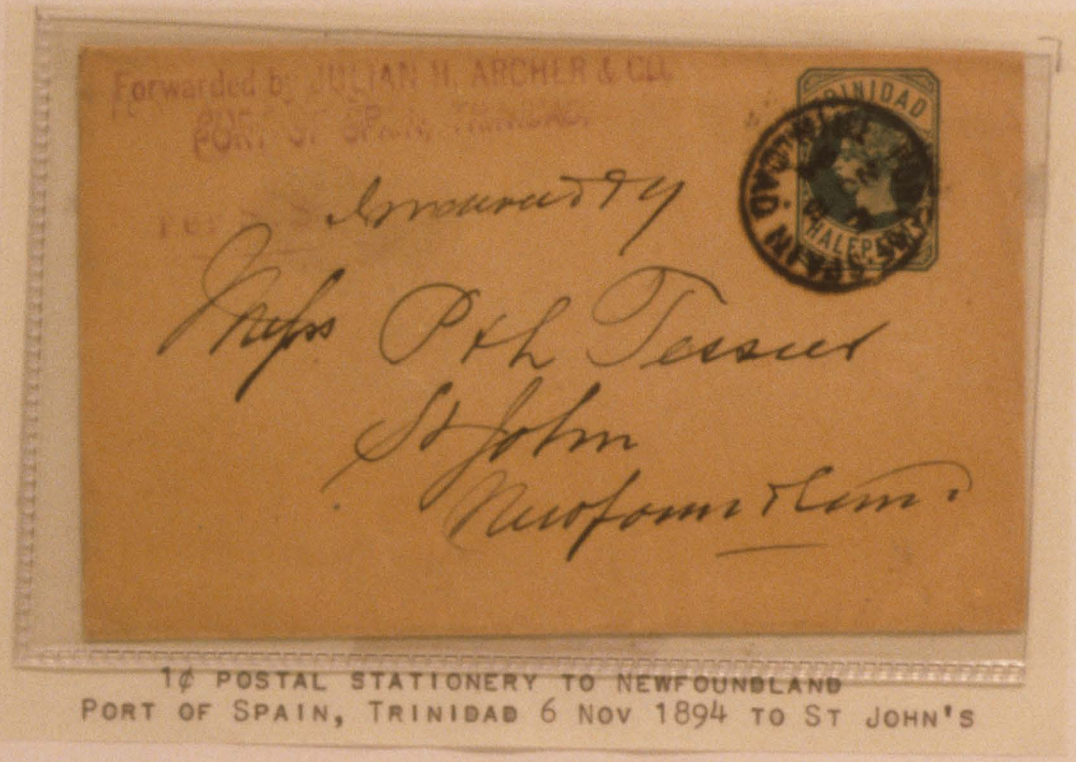 Forwarded by JULIAN H. ARCHER & CO.
PORT OF SPAIN, TRINIDAD.
Per S.S.
TRINIDAD
HALFPENNY
SPAIN
TRINIDAD
Mess P & L Tessier
St John
Newfoundland
1¢ POSTAL STATIONERY TO NEWFOUNDLAND
PORT OF SPAIN, TRINIDAD 6 NOV 1894 TO ST JOHN'S